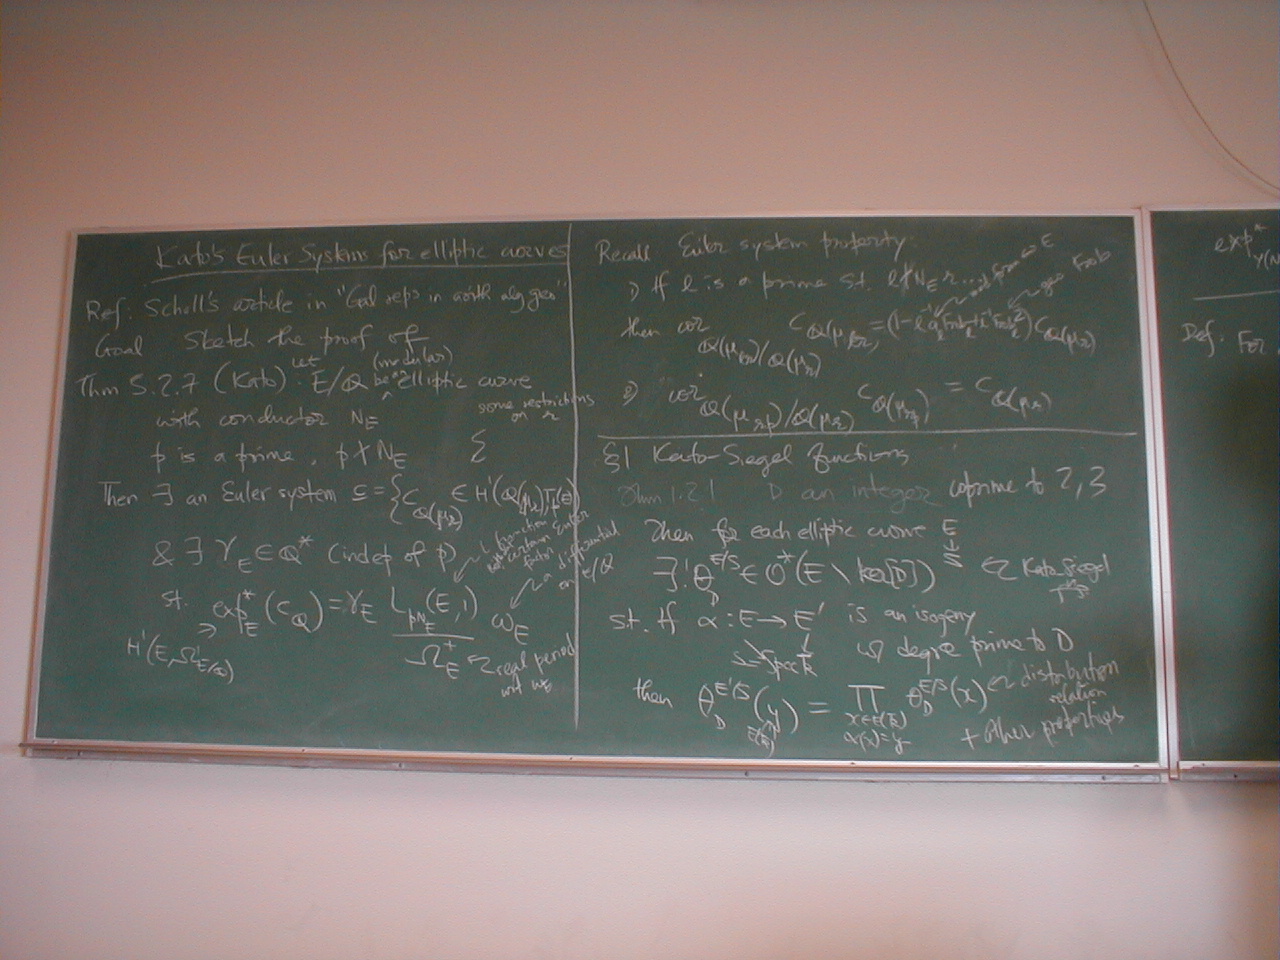 Kato's Euler Systems for elliptic curves
Ref: Scholl's article in "Gal reps in arith alg geo"
Goal Sketch the proof of
Thm 5.2.7 (Kato): Let E/ℚ be an (modular) elliptic curve
with conductor N_E
some restrictions on r
p is a prime, p∤N_E
Then ∃ an Euler system c = {c_{ℚ(μ_r)} ∈ H¹(ℚ(μ_r), T_p(E))
& ∃ γ_E ∈ ℚ* (indep of p)
L function with certain Euler factor
a differential on E/ℚ
st. exp*_E (c_ℚ) = γ_E L_{pN_E}(E,1) / Ω_E^+ ω_E
H¹(E, Ω¹_{E/ℚ})
real period wrt ω_E
Recall Euler system property:
1) If ℓ is a prime s.t. ℓ∤N_E r
geo Frob
then cor_{ℚ(μ_{ℓr})/ℚ(μ_r)} c_{ℚ(μ_{ℓr})} = (1 - ℓ^{-1} a_ℓ Frob_ℓ + ℓ^{-1} Frob_ℓ²) c_{ℚ(μ_r)}
2) cor_{ℚ(μ_{rp})/ℚ(μ_r)} c_{ℚ(μ_{rp})} = c_{ℚ(μ_r)}
§1 Kato-Siegel functions
Thm 1.2.1 D an integer coprime to 2,3
Then for each elliptic curve E ↓ S
∃! θ_D^{E/S} ∈ O*(E \ ker[D]) Kato-Siegel
st. If α: E → E' is an isogeny
S = Spec k w/ degree prime to D
then θ_D^{E'/S}(y) = ∏_{x∈E(k̄) α(x)=y} θ_D^{E/S}(x) distribution relation
+ other properties
exp*
Def: For